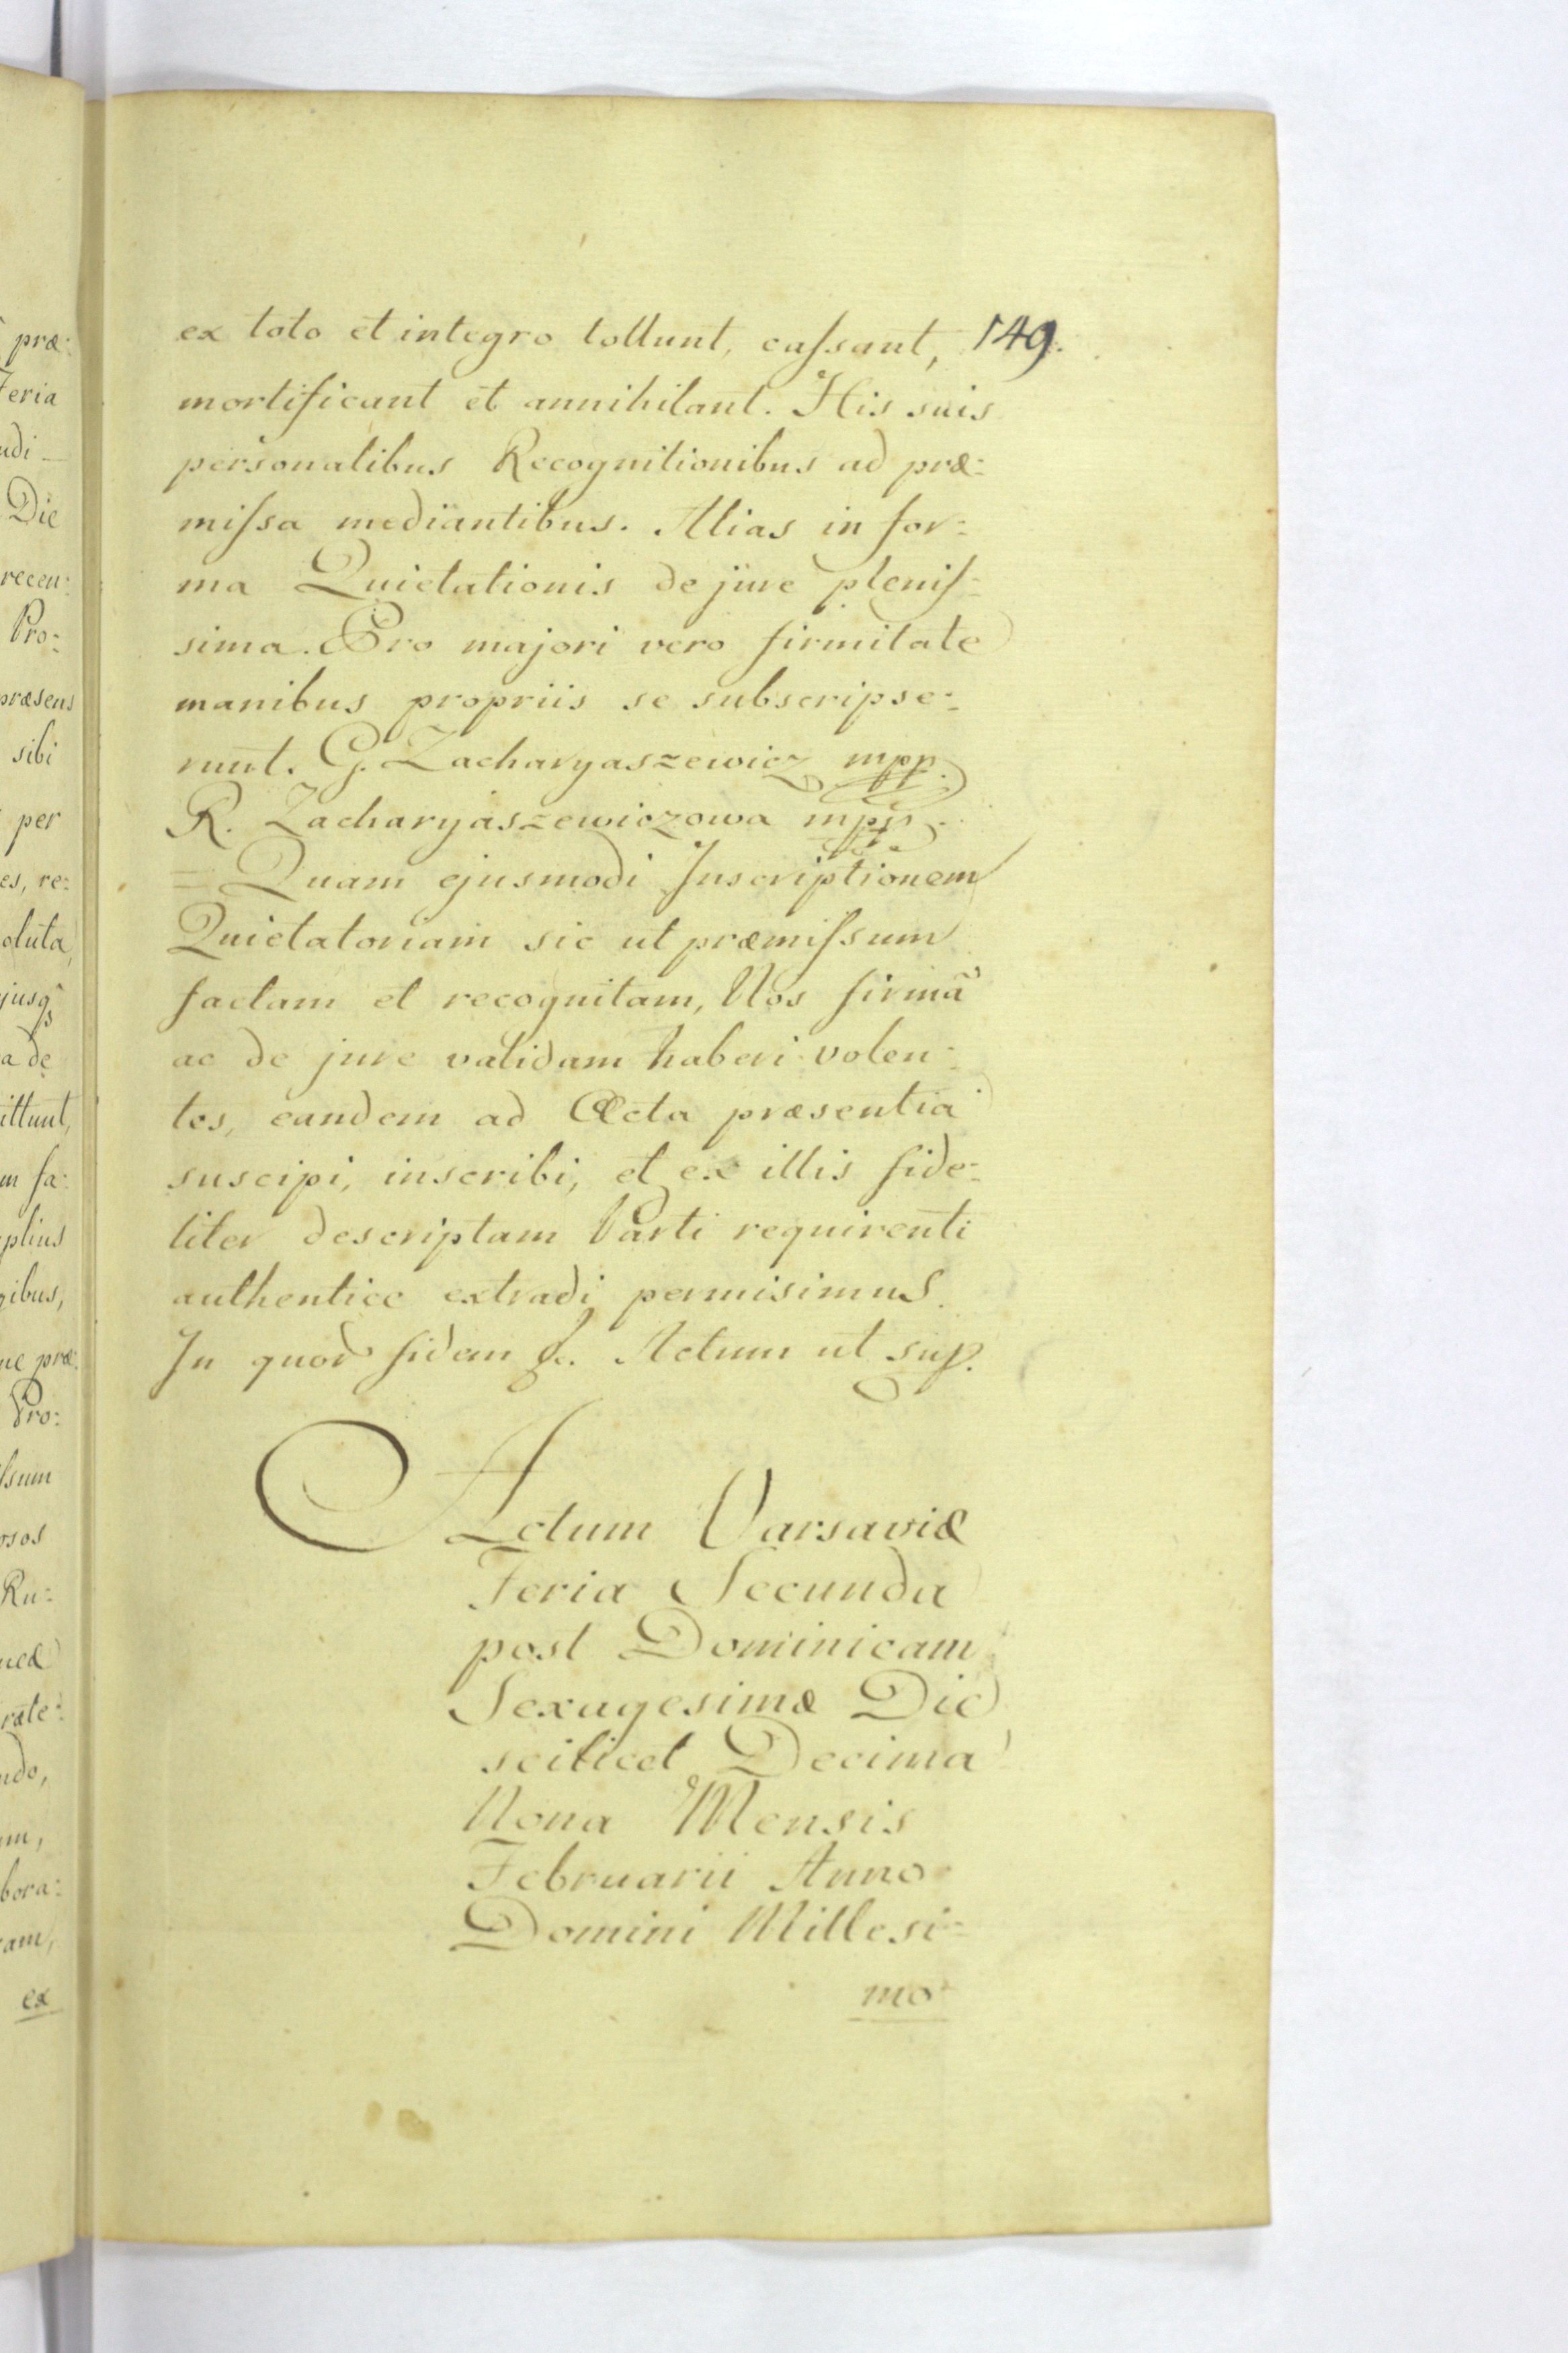 præ:
Feria
udi_
Die
recen:
Pro:
præsens
sibi
per
es, re:
oluta,
ejusq̃
a de
ittunt,
m fa:
plius
gibus,
ue præ:
Pro:
ſsum
osos
Ru:
neæ
rate:
ndo,
um,
bora:
ram,
ex
149.
ex toto et integro tollunt, caſsant,
mortificant et annihilant. His suis
personalibus Recognitionibus ad præ:
miſsa mediantibus. Alias in for:
ma Quietationis de jure pleniſ:
sima. Pro majori vero firmitate
manibus propriis se subscripse:
runt. G. Zacharyaszewicz mpp.
R. Zacharyaszewiczowa mpp.
= Quam ejusmodi Inscriptionem
Quietatoriam sic ut præmiſsum
factam et recognitam, Nos firmã
ac de jure validam haberi volen:
tes, eandem ad Acta præsentia
suscipi, inscribi, et ex illis fide:
liter descriptam Parti requirenti
authentice extradi permisimus.
In quod fidem &c. Actum ut sup.
Actum Varsaviæ
Feria Secunda
post Dominicam
Sexagesimæ Die
scilicet Decima
Nona Mensis
Februarii Anno
Domini Millesi:
mo